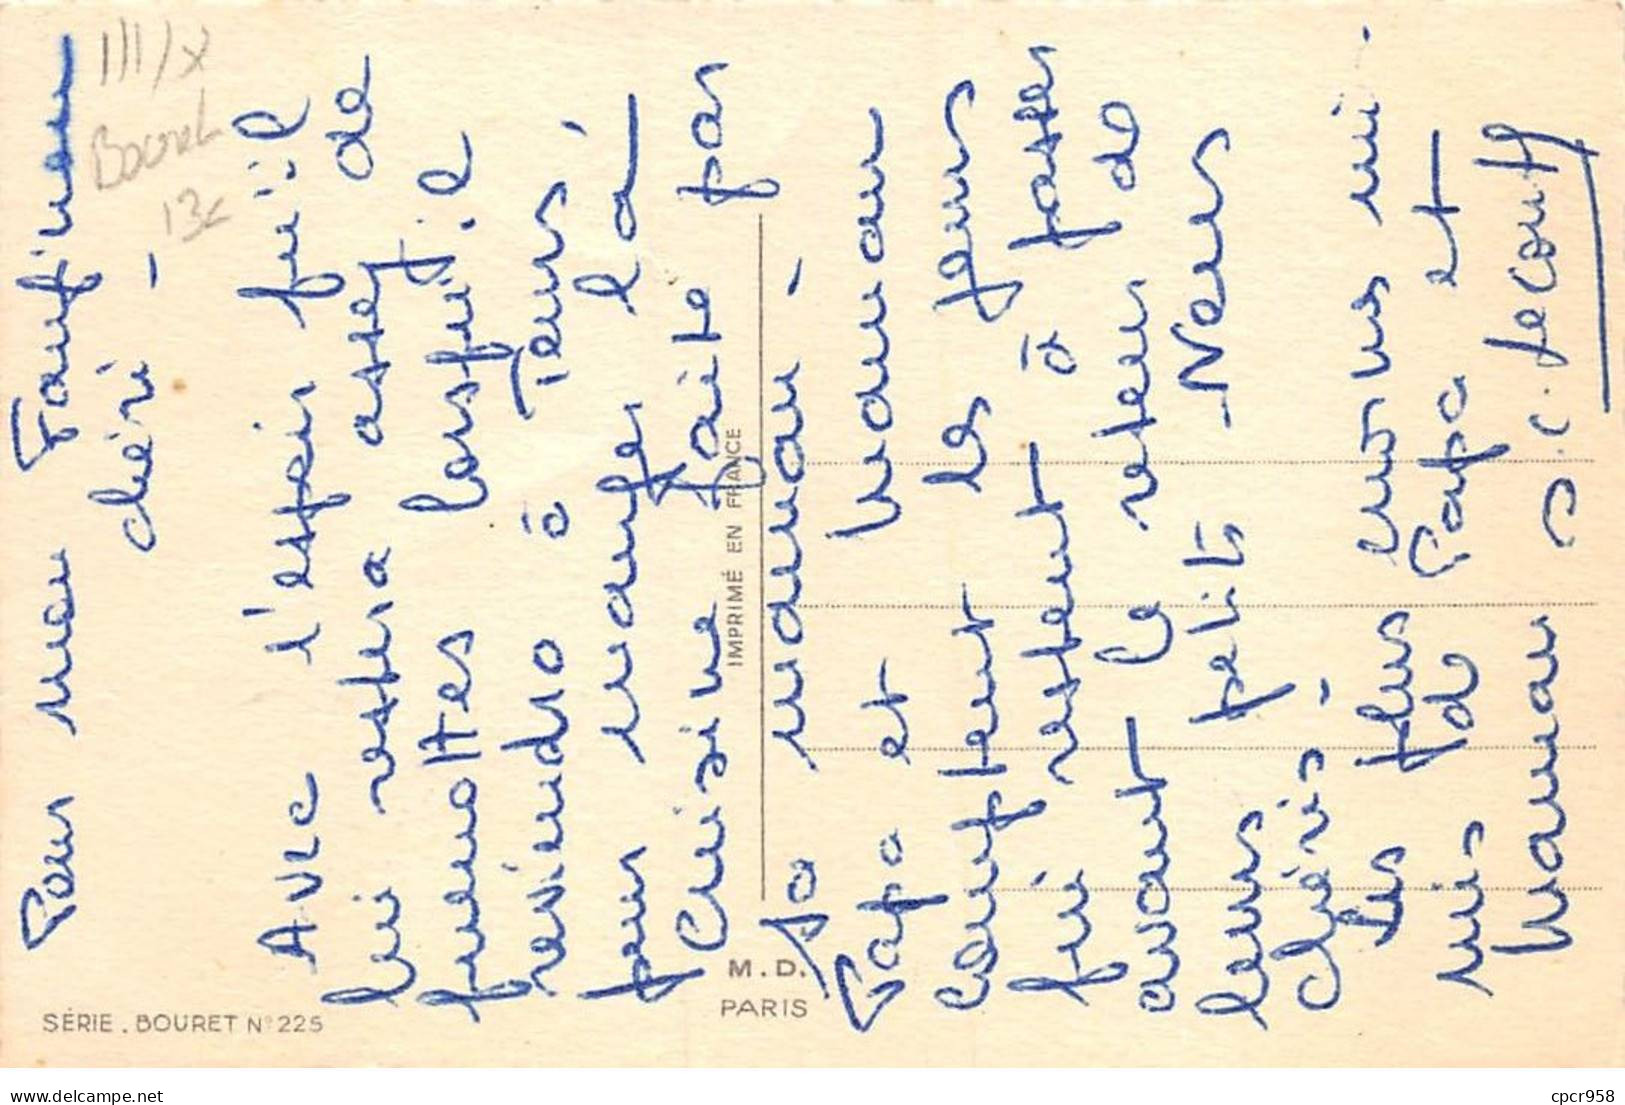 Pour mon Tonfinou
chéri -
Avec l'espoir qu'il
lui restera assez de
quenottes lorsqu'il
reviendra à Tours,
pour manger la
Cuisine faite par
sa maman -
Papa et maman
comptent les jours
qui restent à passer
avant le retour de
leurs petits -
chéris -
Les plus gros mi-
mis de Papa et
maman
III/X
Bouret
13c
SÉRIE . BOURET Nº 225
M. D.
PARIS
IMPRIMÉ EN FRANCE
delcampe.net
cpcr958